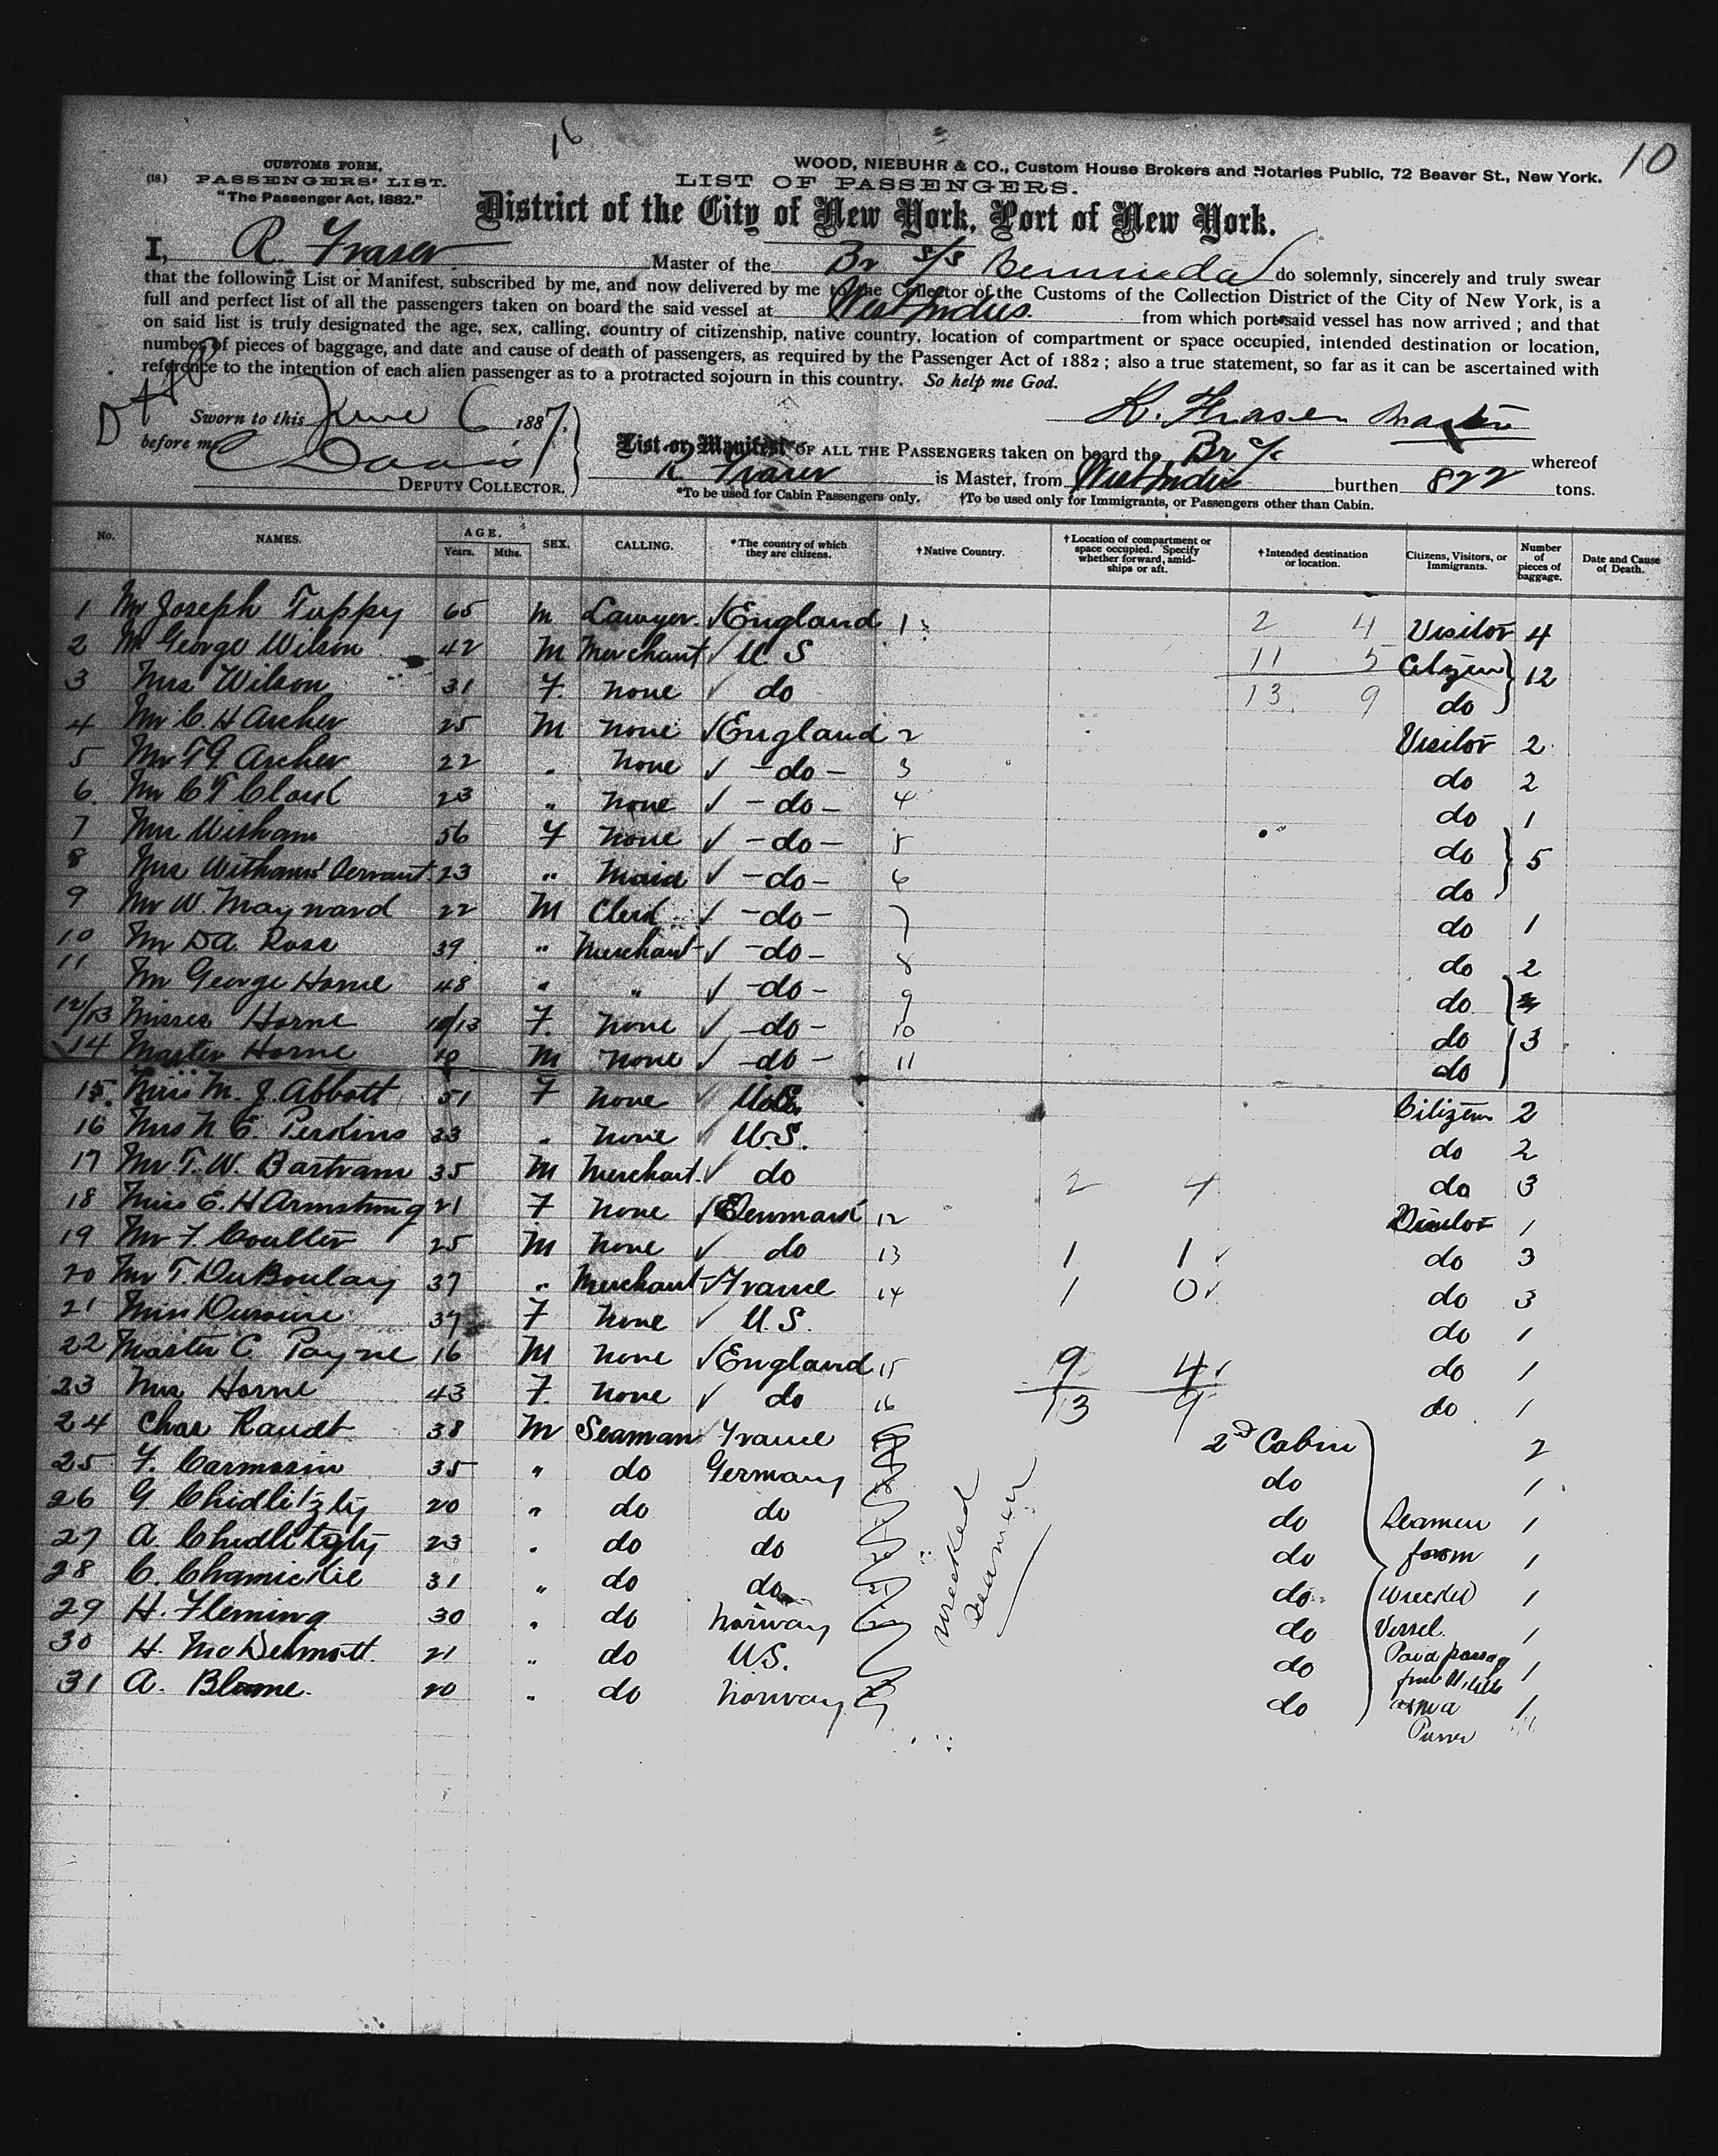 16
10
CUSTOMS FORM,
(18.) PASSENGERS' LIST.
"The Passenger Act, 1882."
WOOD, NIEBUHR & CO., Custom House Brokers and Notaries Public, 72 Beaver St., New York.
LIST OF PASSENGERS.
District of the City of New York, Port of New York.
I, R. Fraser Master of the Br S/S Bermuda do solemnly, sincerely and truly swear
that the following List or Manifest, subscribed by me, and now delivered by me to the Collector of the Customs of the Collection District of the City of New York, is a
full and perfect list of all the passengers taken on board the said vessel at West Indies. from which port said vessel has now arrived; and that
on said list is truly designated the age, sex, calling, country of citizenship, native country, location of compartment or space occupied, intended destination or location,
number of pieces of baggage, and date and cause of death of passengers, as required by the Passenger Act of 1882; also a true statement, so far as it can be ascertained with
reference to the intention of each alien passenger as to a protracted sojourn in this country. So help me God.
Sworn to this June 6 1887.
R. Fraser Master
before me C Davis
DEPUTY COLLECTOR.
List or Manifest OF ALL THE PASSENGERS taken on board the Br S/S whereof
R. Fraser is Master, from West Indies burthen 822 tons.
*To be used for Cabin Passengers only. †To be used only for Immigrants, or Passengers other than Cabin.
No. NAMES. AGE. Years. Mths. SEX. CALLING. *The country of which they are citizens. †Native Country. †Location of compartment or space occupied. Specify whether forward, amidships or aft. †Intended destination or location. Citizens, Visitors, or Immigrants. Number of pieces of baggage. Date and Cause of Death.
1 Mr Joseph Tuppy 65 M Lawyer. ✓ England 1 2 4 Visitor 4
2 Mr George Wilson 42 M Merchant ✓ U. S 11 5 Citizen 12
3 Mrs Wilson 31 F. none ✓ do 13 9 do
4 Mr C. H Archer 25 M none ✓ England 2 Visitor 2
5 Mr T G. Archer 22 " none ✓ - do - 3 do 2
6. Mr C T Cloud 23 " none ✓ - do - 4 do 1
7 Mrs Witham 56 F none ✓ - do - 5 do 5
8 Mrs Withams Servant 23 " Maid ✓ - do - 6 do
9 Mr W. Maynard 22 M Clerk ✓ - do - 7 do 1
10 Mr D A. Ross 39 " Merchant ✓ - do - 8 do 2
11 Mr George Horne 48 " " ✓ - do - 9 do
12/13 Misses Horne 18/13 F. none ✓ - do - 10 do 3
14 Master Horne 10 M none ✓ - do - 11 do
15. Miss M. J. Abbott 51 F none ✓ U.S. Citizen 2
16 Mrs N. E. Perkins 33 " none ✓ U.S. do 2
17 Mr T. W. Bartram 35 M Merchant. ✓ do 2 4 do 3
18 Miss E. H Armstrong 21 F none ✓ Denmark 12 Visitor 1
19 Mr F. Coulter 25 M none ✓ do 13 1 1 ✓ do 3
20 Mr T. DuBoulay 37 " Merchant ✓ France 14 1 0 ✓ do 3
21 Miss 37 F none ✓ U.S. do 1
22 Master C. Payne 16 M none ✓ England 15 9 4 ✓ do 1
23 Mrs Horne 43 F. none ✓ do 16 13 9 do 1
24 Chas Raudt 38 M Seaman France 2d Cabin 2
25 F. Carmosin 35 " do Germany do 1
26 G. 20 " do do do Seamen 1
27 A. 23 " do do do from 1
28 C. 31 " do do do wrecked 1
29 H. Fleming 30 " do Norway do Vessel. 1
30 H. McDermott. 21 " do U.S. do Paid passag 1
31 A. Blume. 20 " do Norway do 1
wrecked
seamen